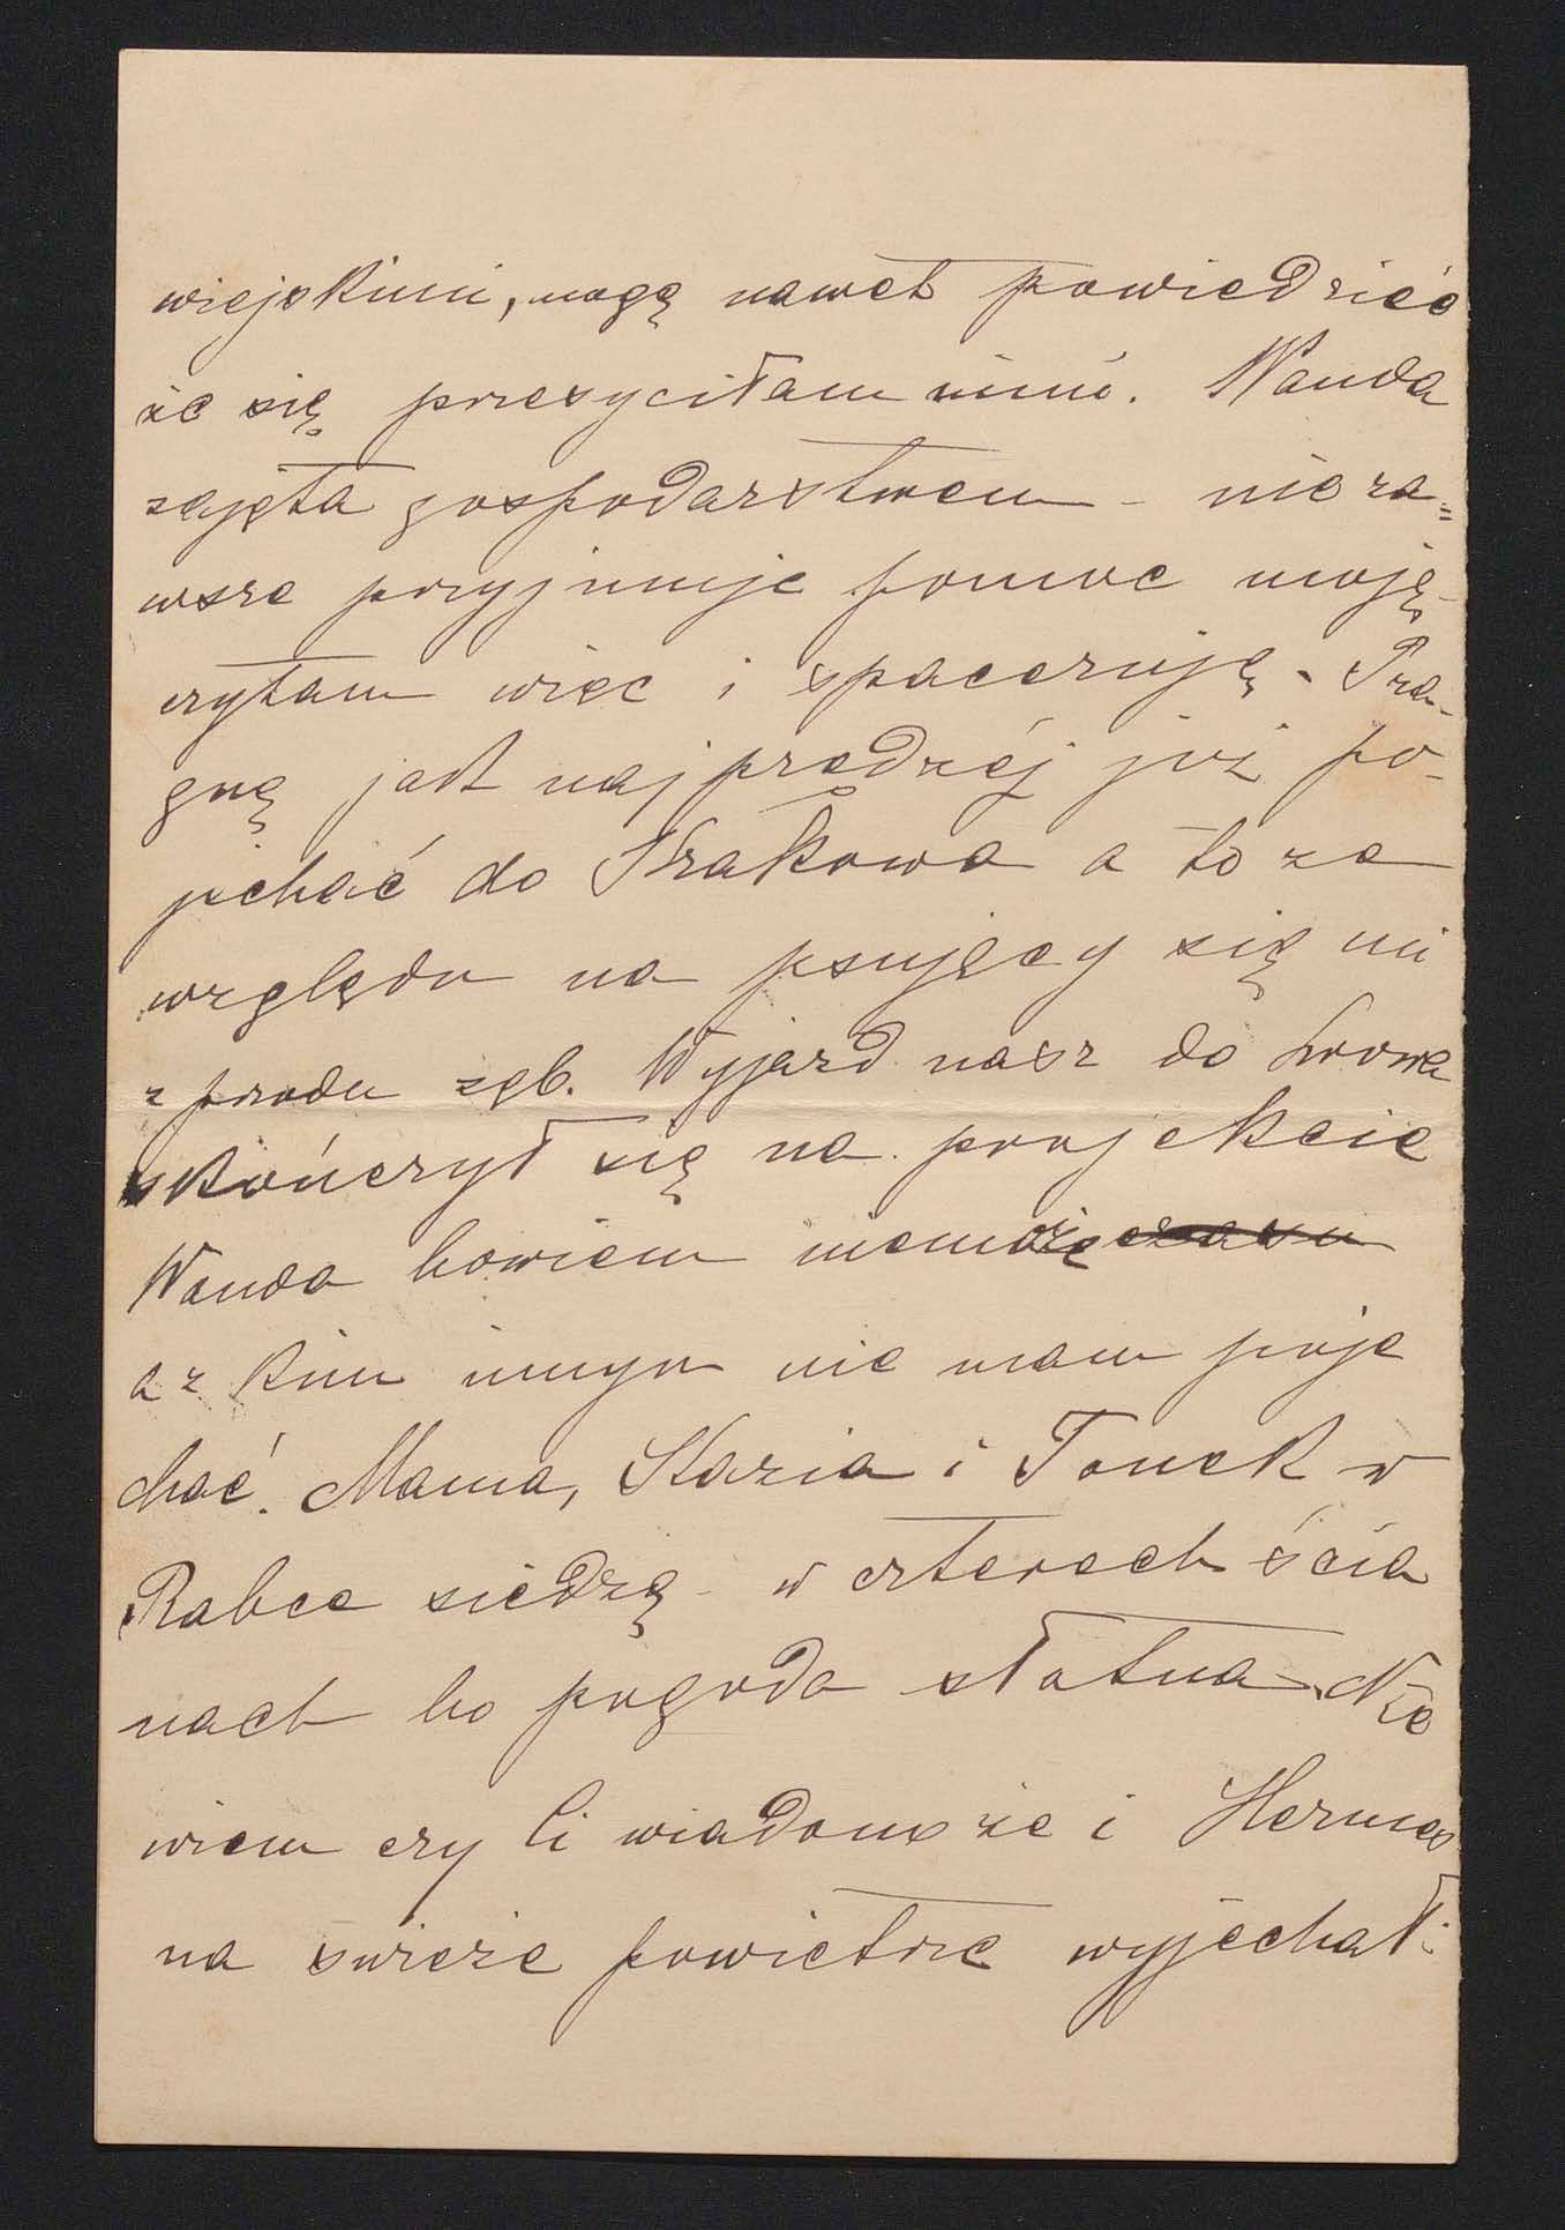 wiejskimi, mogę nawet powiedzieć
że się przesyciłam nimi. Wanda
zajęta gospodarstwem - nie za=
wsze przyjmuje pomoc moję
czytam więc i spaceruję. Pra-
gnę jak najprędzéj już po-
jechać do Krakowa a to ze
względu na psujęcy się mi
z przodu ząb. Wyjazd nasz do Lwowa
skończył się na projekcie
Wanda bowiem niemoże czasu
a z kim innym nie mam poje
chać. Mama, Kazia i Tonek w
Rabce siedzą - w czterech ścia
nach bo pogoda słotna. Nie
wiem czy Ci wiadomo że i Hermes
na świeże powietrze wyjechał: